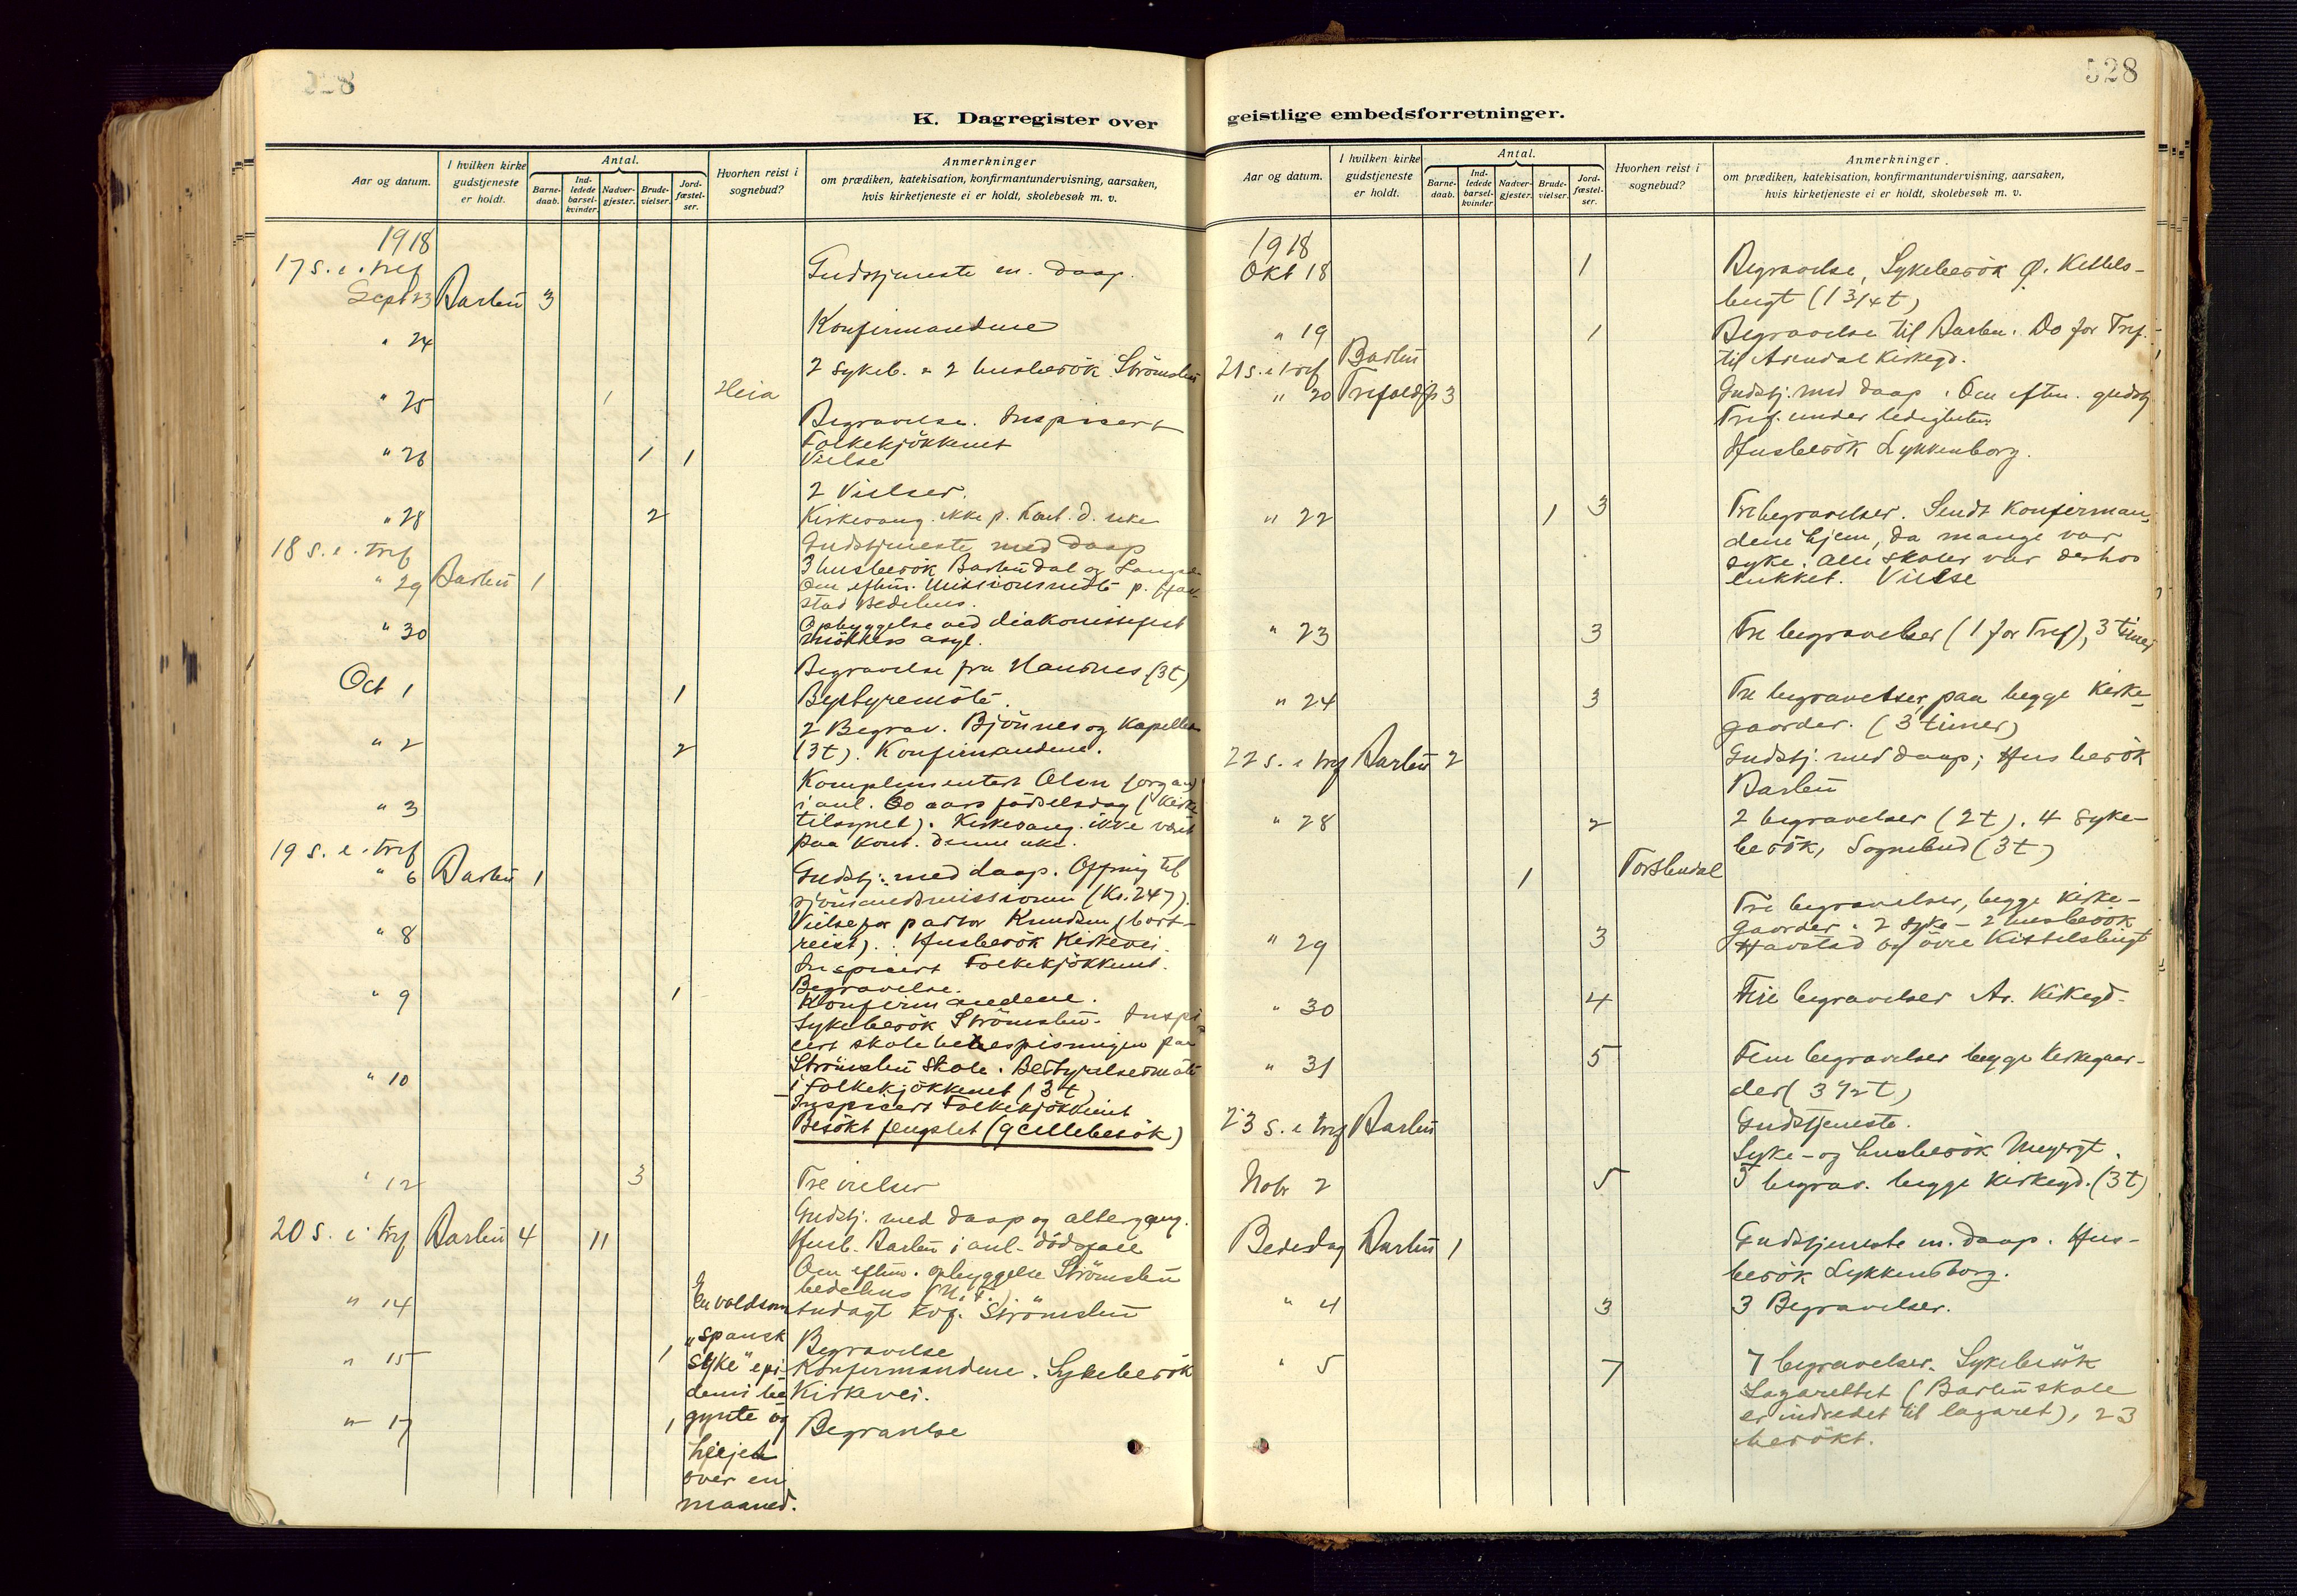 528
K. Dagregister over
Aar og datum.
I hvilken kirke gudstjeneste er holdt.
Antal.
Barne-daab.
Ind-ledede barsel-kvinder.
Nadver-gjester.
Brude-vielser.
Jord-fæstel-ser.
Hvorhen reist i sognebud?
Anmerkninger
om prædiken, katekisation, konfirmantundervisning, aarsaken,
hvis kirketjeneste ei er holdt, skolebesøk m. v.
1918
17 s. e. tref Gudstjeneste m. daap.
Sept 23 Barbu 3
" 24 Konfirmandene
2 sykeb. 2 husbesök Strömsbu
" 25 1 Heia
Begravelse. Inspisert
Folkekjökkenet
" 26 1 1 Vielse
2 Vielser.
" 28 2 Kirkesang. ikke p. Kont. d. uke
18 s. e. tref Gudstjeneste med daap
3 husbesök Barbudal og
" 29 Barbu 1 Om eftm. Missionsmöte p. Hav-
stad Bedehus.
" 30 Opbyggelse ved diakonissefest
asyl.
Begravelse fra (3t)
Oct 1 1
2 Begrav. Bjönnes og Kapellet
" 2 2 (3t). Konfirmandene.
Komplimentert Olsen
" 3 i anl. 60 aars födselsdag
Kirkesang. ikke været
19 s. e. tref paa Kont. denne uke.
" 6 Barbu 1 Gudstj. med daap. Ofring til
sjömandsmissionen (Kr. 247).
Vielse for pastor Knudsen (bort-
" 8 reist). Husbesök Kirkevei.
Inspisert Folkekjökkenet.
Begravelse.
" 9 1 Konfirmandene.
Sykebesök Strömsbu. Inspi-
sert skolebespisningen paa
Strömsbu Skole. Bestyrelsesmöte
" 10 i Folkekjökkenet (3t)
Inspisert Folkekjökkenet
Besökt fengslet (9 cellebesök)
" 12 3 Tre vielser
20 s. e. tref Barbu 4 11 Gudstj. med daap og altergang.
Husb. Barbu i anl. dödsfall
Om eftm. opbyggelse Strömsbu
bedehus
" 14 Andagt Kvf. Strömsbu
" 15 1 Begravelse
Konfirmandene. Sykebesök
Kirkevei.
" 17 1 Begravelse
En voldsom
"spansk
syke" epi-
demi be-
gynte og
herjet
over en
maaned.
528
geistlige embedsforretninger.
Aar og datum.
I hvilken kirke gudstjeneste er holdt.
Antal.
Barne-daab.
Ind-ledede barsel-kvinder
Nadver-gjester.
Brude-vielser.
Jord-fæstel-ser.
Hvorhen reist i sognebud?
Anmerkninger.
om prædiken, katekisation, konfirmantundervisning, aarsaken,
hvis kirketjeneste ei er holdt, skolebesøk m. v.
1918
Okt 18 1 Begravelse, Sykebesök Ø. Kittels-
bugt (1 3/4 t)
" 19 1 Begravelse til Barbu. Do for Tref.
til Arendal Kirkegd.
21 s. e. tref Barbu
" 20 Trefoldh 3 Gudstj. med daap. Om eftm. gudstj
Tref. under ledigheten
Husbesök Lykkenborg.
" 22 1 3 Tre begravelser. Sendt Konfirman-
dene hjem, da mange var
syke. Alle skoler var derhos
lukket. Vielse
" 23 3 Tre begravelser (1 for Tref), 3 timer
" 24 3 Tre begravelser, paa begge Kirke-
gaarder. (3 timer)
22 s. e. tref Barbu 2 Gudstj. med daap; Husbesök
Barbu
" 28 2 2 begravelser (2t). 4 syke-
besök, Sognebud (3t)
1 Torsbudal
Tre begravelser, begge Kirke-
gaarder. 2 syke- 2 husbesök
" 29 3 Havstad og övre Kittelsbugt
" 30 4 Fire begravelser Ar. Kirkegd.
" 31 5 Fem begravelser begge Kirkegaar-
der (3 1/2 t)
23 s. e. tref Barbu Gudstjeneste.
Syke- og husbesök
Nobr 2 5 5 begrav. begge Kirkegd. (3t)
Bededag Barbu 1 Gudstjeneste m. daap. Hus-
besök Lykkensborg.
" 4 3 3 Begravelser.
" 5 7 7 begravelser. Sykebesök
Lazarettet (Barbu skole
er indredet til lazaret), 23
besökt.